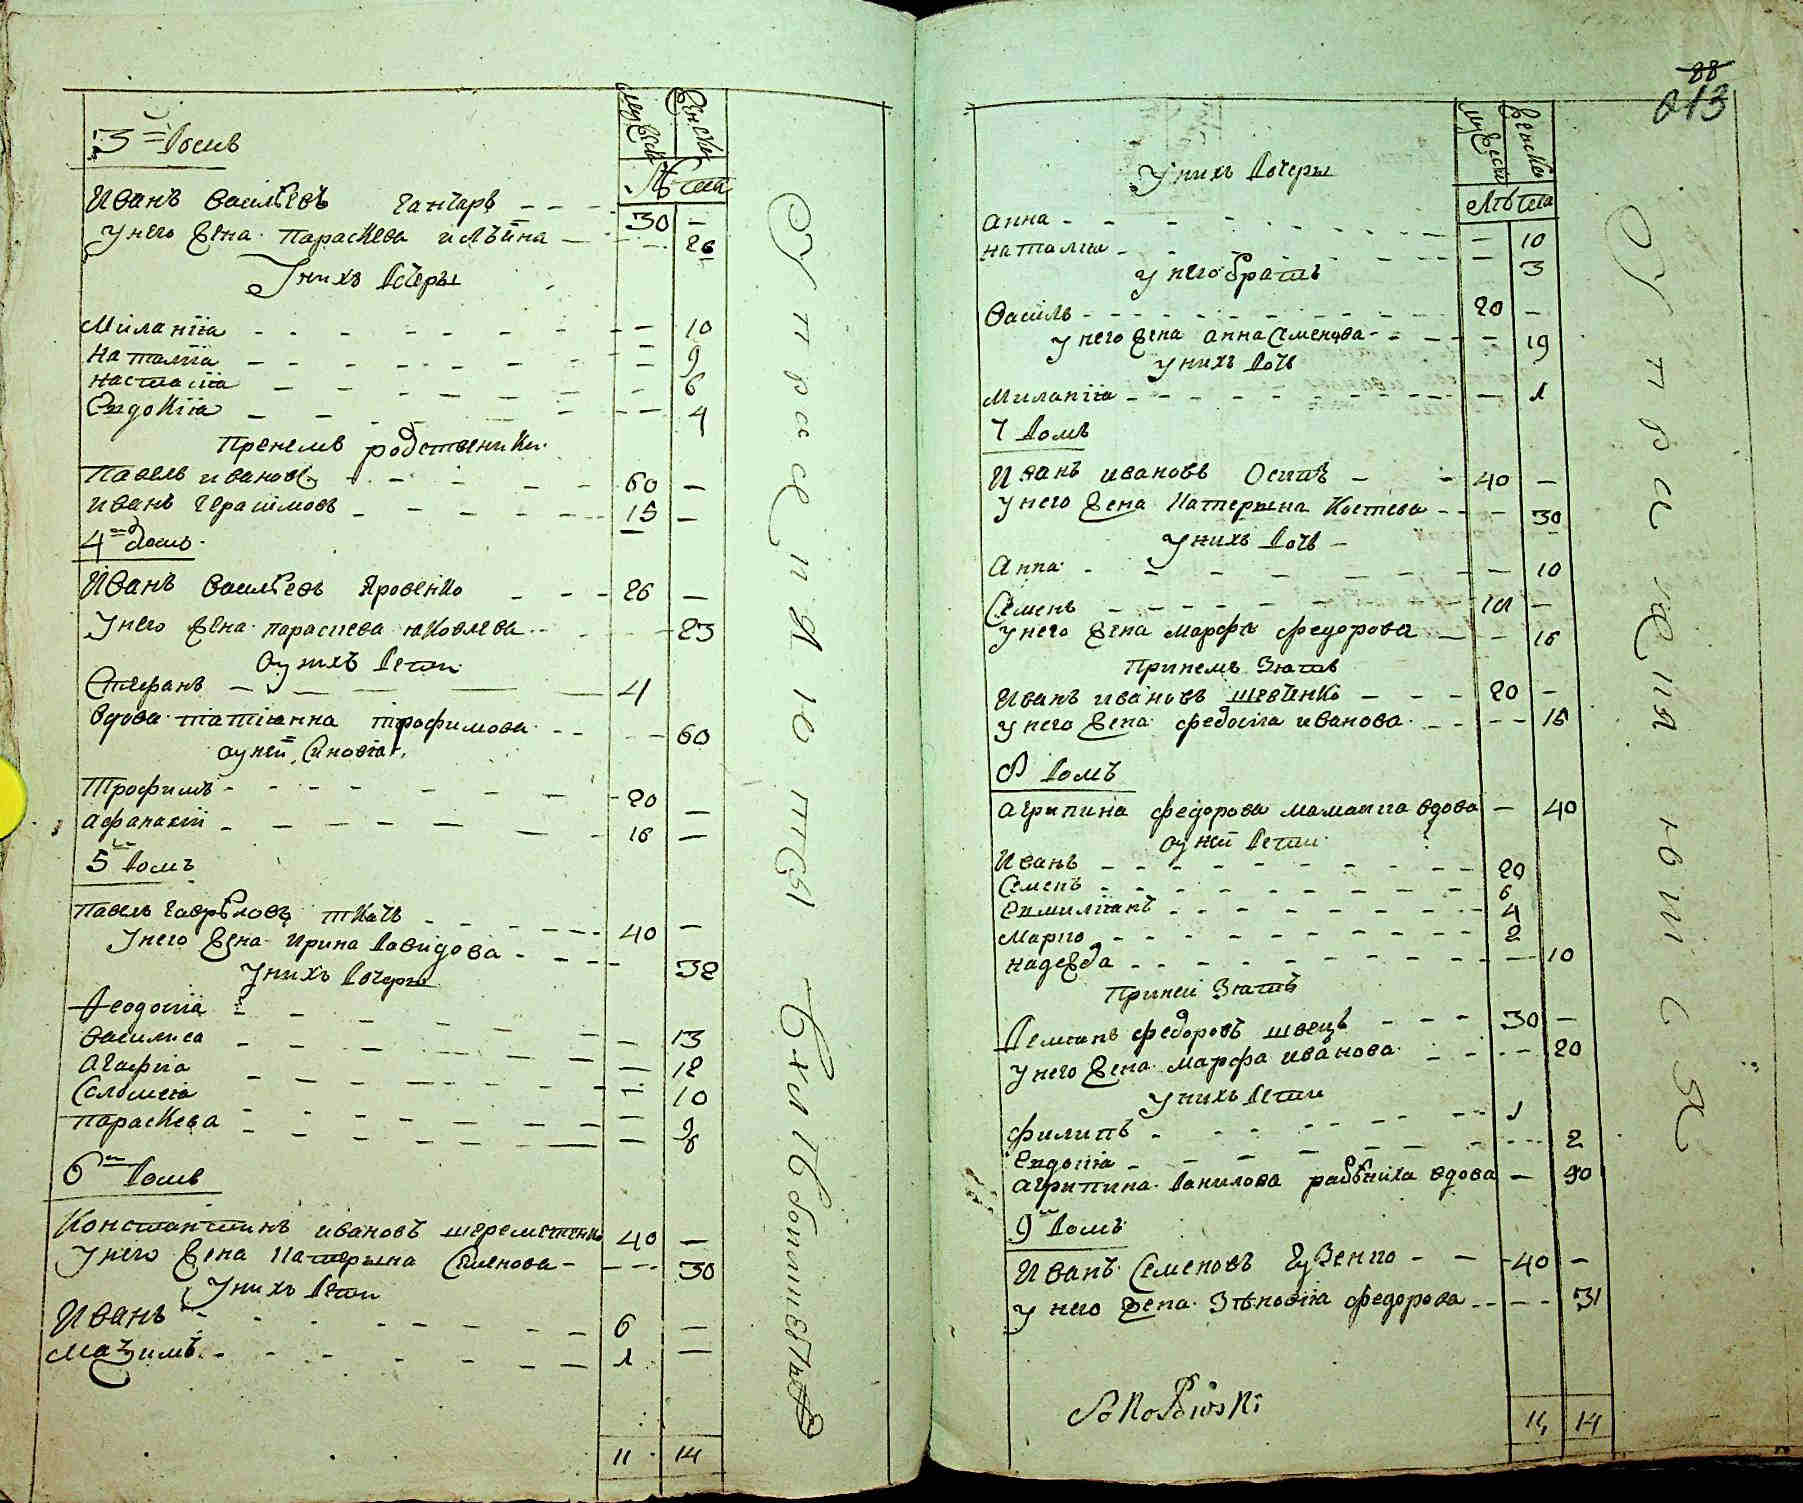 мужеска
женска
Лѣта
3 Домъ
Иванъ Васильевъ Ганчаръ 30 —
У него жена Параскева Ильина — 26
У нихъ Дочеры
Миланія — 10
Наталія — 9
Настасія — 6
Евдокія — 4
При немъ родственики
Павелъ Ивановъ 60 —
Иванъ Герасимовъ 15 —
4 Домъ
Иванъ Васильевъ Яровенко 26 —
У него жена Параскева Яковлева — 23
Оу нихъ Дети
Стефанъ 4
Вдова Татіанна Трофимова — 60
Оу ней Синовія
Трофимъ 20 —
Афанасій 16 —
5 Домъ
Павелъ Гаврѣловъ Ткачъ 40 —
У него жена Ирина Давидова — 32
У нихъ Дочеры
Феодосіа — 13
Василиса — 12
Агафіа — 10
Соломіа — 9
Параскева — 6
6 Домъ
Константинъ Ивановъ Шереметенко 40 —
У него жена Катерына Семенова — 30
У нихъ Дети
Иванъ 6 —
Маѯимъ 1 —
11 14
Оупражняются
хлѣбопашествомъ
88
013
мужеска
женска
Лѣта
У нихъ Дочеры
Анна — 10
Наталіа — 3
У него братъ
Василь 20 —
У него жена Анна Семенова — 19
У нихъ Дочь
Миланіа — 1
7 Домъ
Иванъ Ивановъ Осипъ 40 —
У него жена Катерына Костева — 30
У нихъ Дочь
Анна — 10
Семенъ —
У него жена Марфа Федорова — 16
При немъ Зять
Иванъ Ивановъ Шевченко 20 —
У него жена Федосіа Иванова — 16
8 Домъ
Агрипина Федорова вдова — 40
Оу ней Дети
Иванъ 20
Семенъ 6
Емиліанъ 4
Марко 2
Надежда — 10
При ней Зять
Деміанъ Федоровъ Швецъ 30 —
У него жена Марфа Иванова — 20
У нихъ Дети
Филипъ 1
Евдокіа — 2
Агрипина Данилова вдова — 90
9 Домъ
Иванъ Семеновъ Гузенко 40 —
У него жена Зѣновіа Федорова — 31
Sokołowski
11 14
Оупражняются